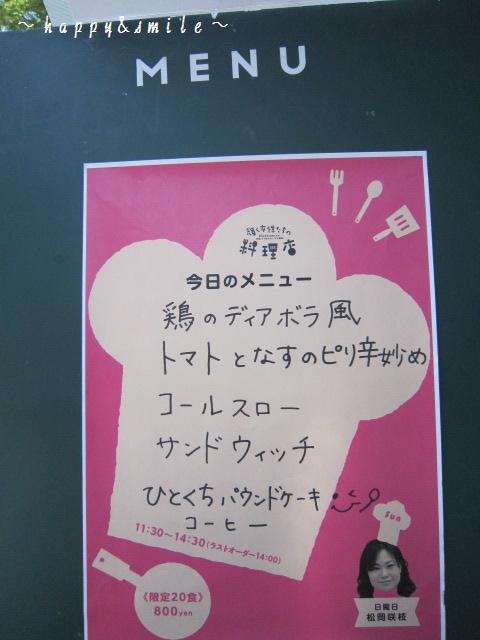 ~happy&smile~
MENU
料理店
今日のメニュー
鶏のディアボラ風
トマトとなすのピリ辛妙め
コールスロー
サンドウィッチ
ひとくちパウンドケーキ
コーヒー
11:30~14:30(ラストオーダー14:00)
《限定20食》
800yen
Sun
日曜日
松岡咲枝